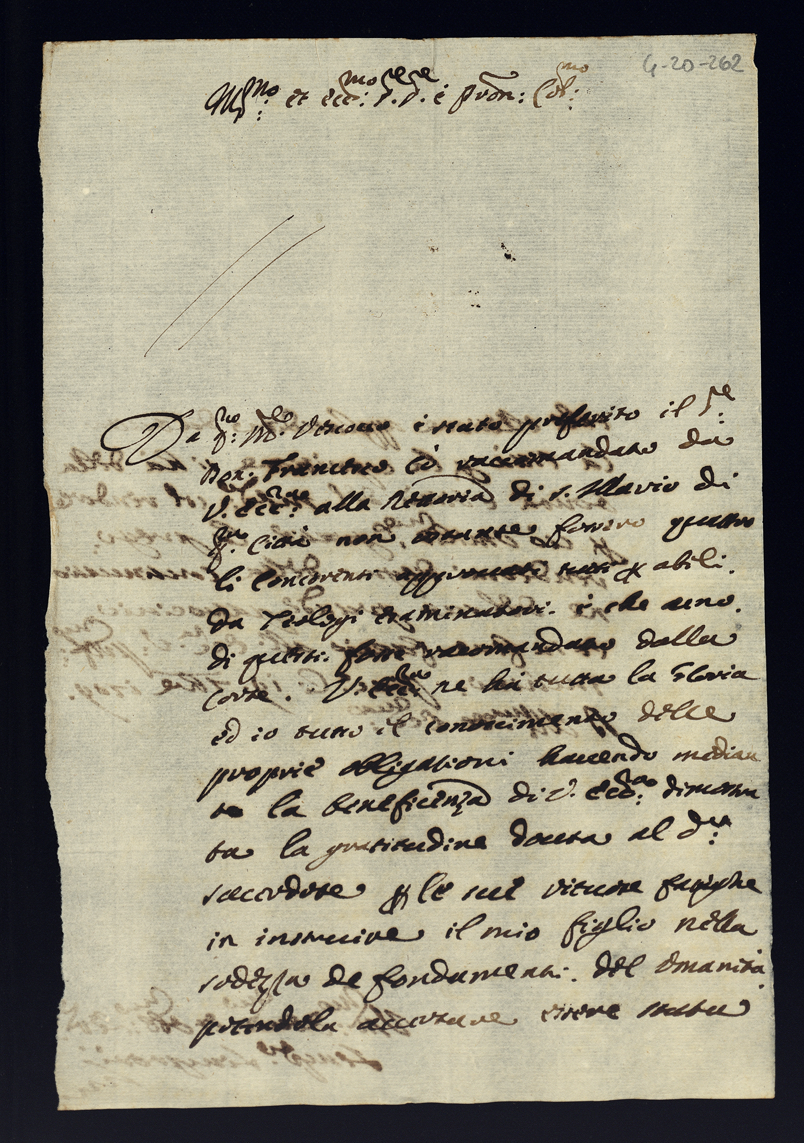 4-20-262
Ill.mo et ecc.mo S.re S.re e pron: Col.mo
Da q.to M.re Vescovo è stato preferito il S.re
Don Francesco Cò raccomandato da
V. Ecc.za alla Rettoria di S. Illario di
q.ta Città non ostante fossero quattro
li concorenti approvati tutti p abili
da Teologi esaminatori. e che uno
di questi fosse racomandato dalla
Corte. V. Ecc.za ne ha tutta la Gloria
ed io tutto il conoscimento delle
proprie obligationi havendo median
te la beneficenza di V. Ecc.za dimostra
ta la gratitudine douta al d.to
sacerdote p le sue virtuose fatighe
in instruire il mio figlio nella
sodezza de fondamenti del Umanità
potendola accertare essere stata